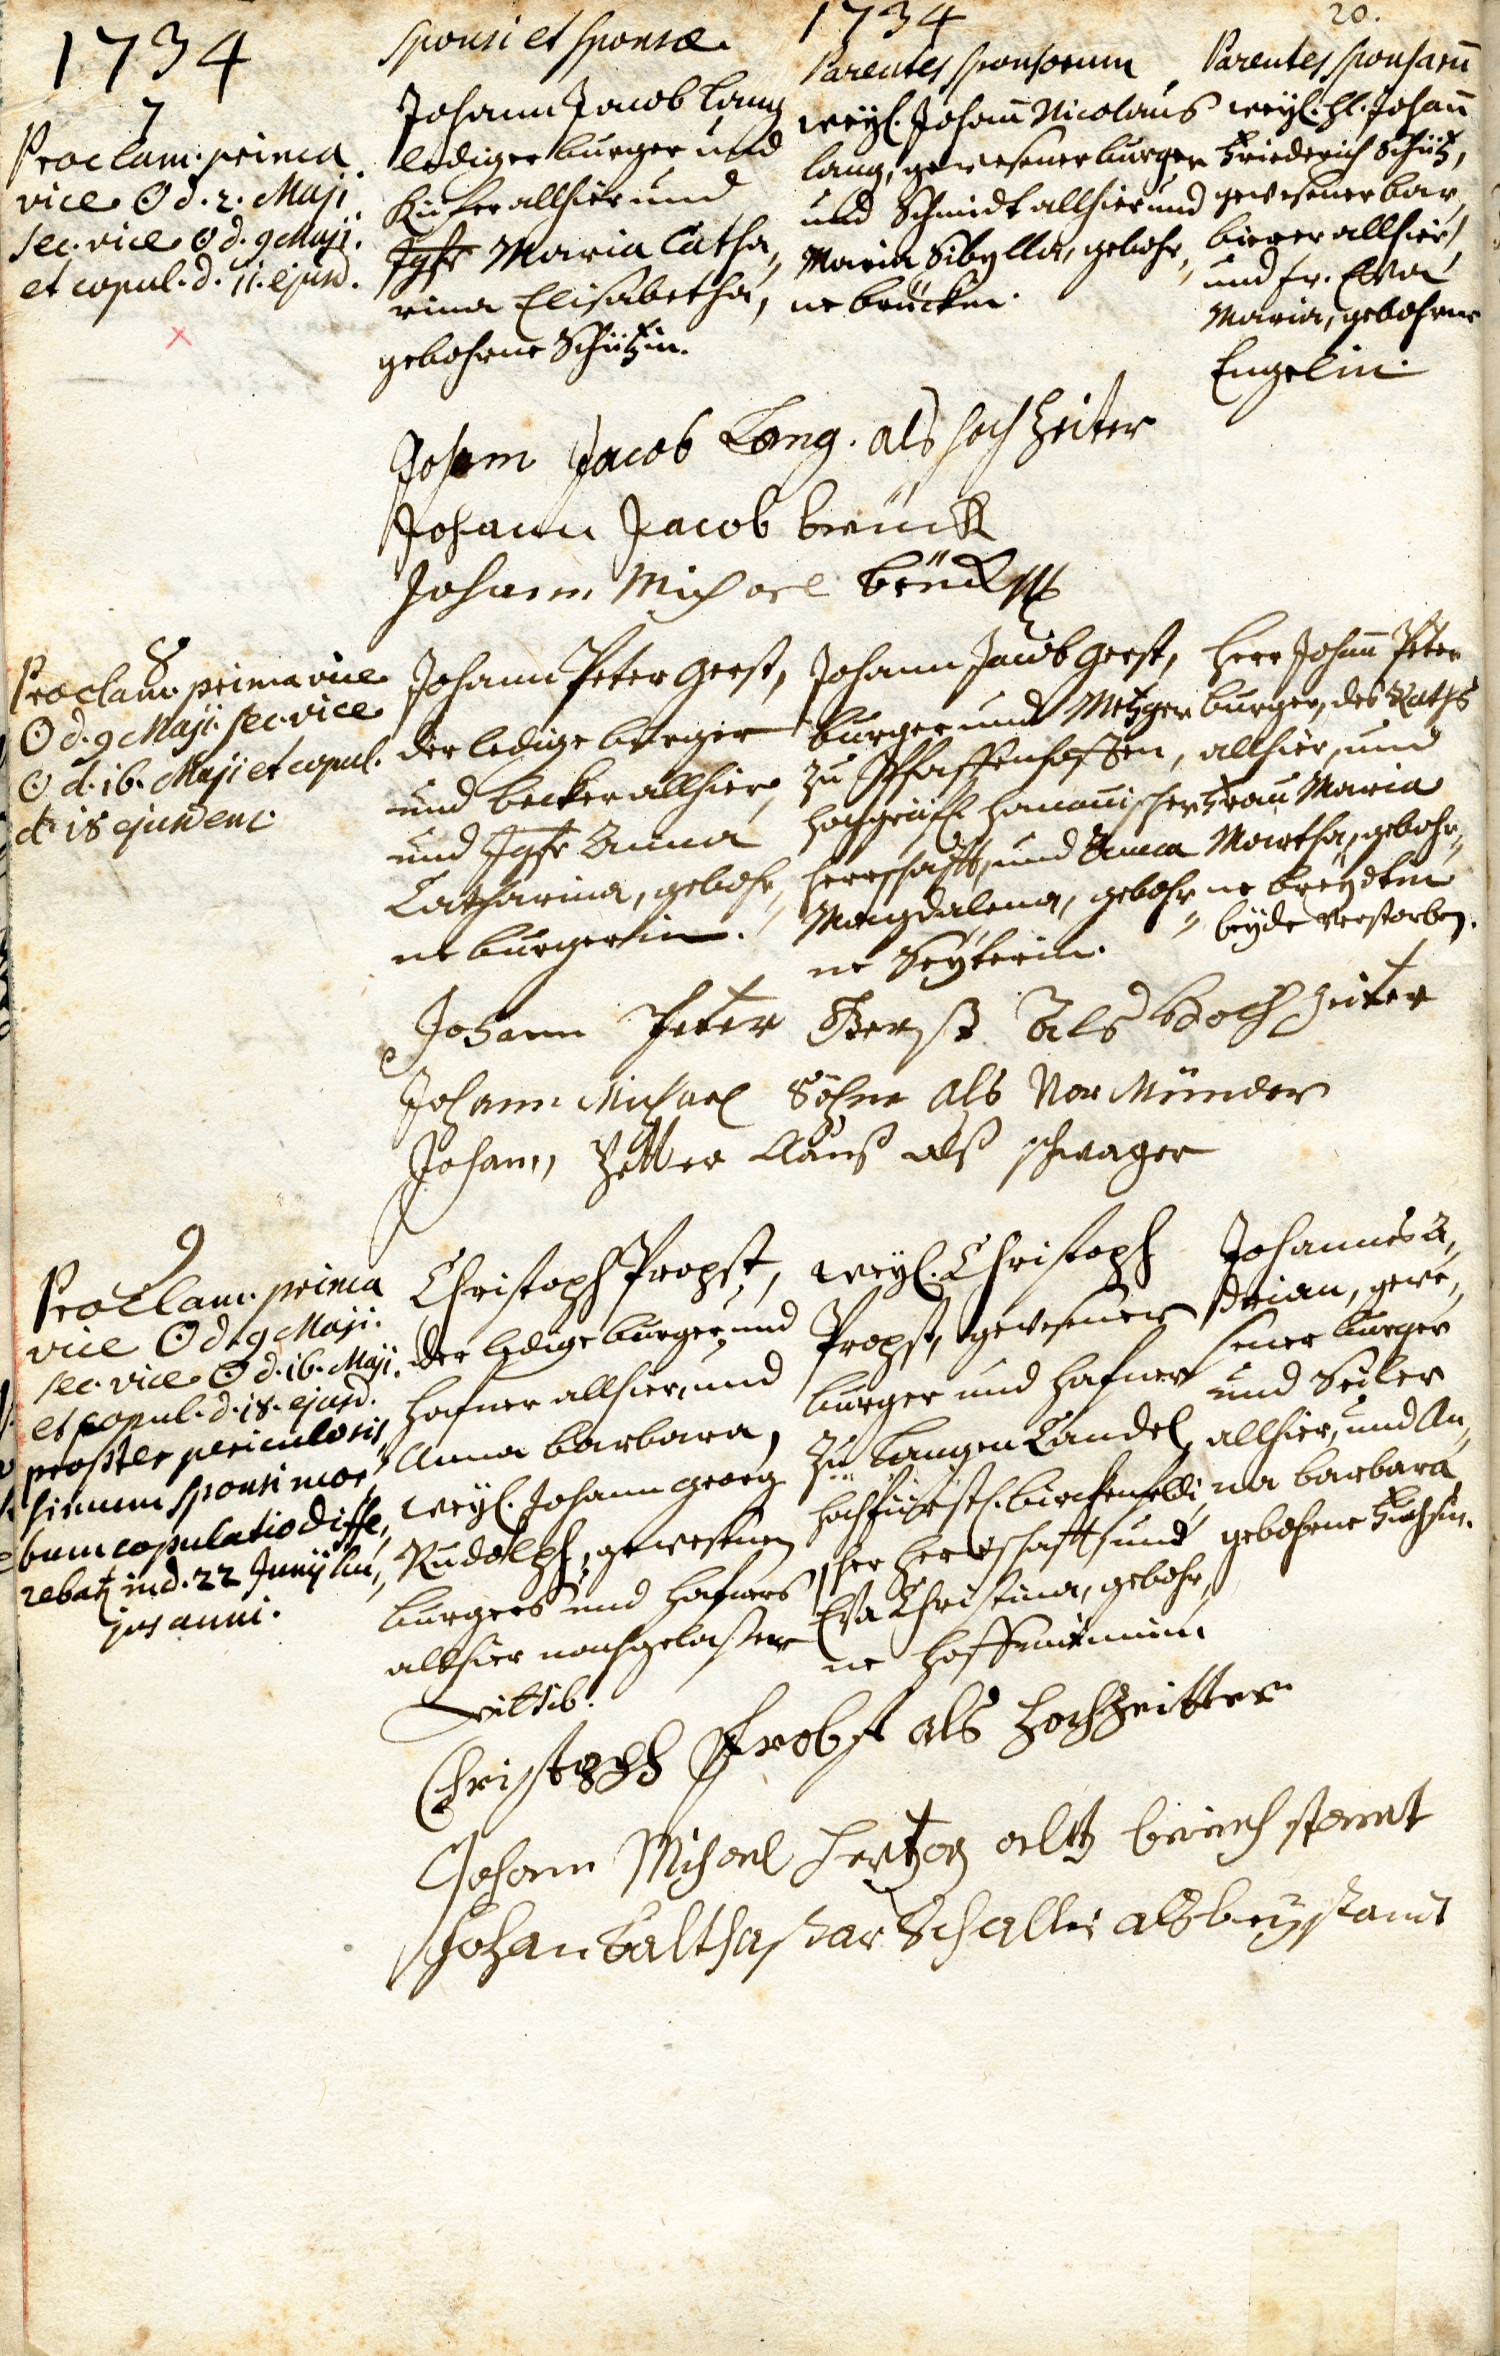 1734
20.
1734
Sponsi et Sponsæ.
Parentes Sponsorum
Parentes Sponsarū
7
Proclam. prima
vice ⊙ d. 2. Maji
sec. vice ⊙ d. 9 Maji.
et copul. d. 11. ejusd.
Johann Jacob Lang
lediger burger und
Kiefer allhier und
Jgfr Maria Catha„
rina Elisabetha,
gebohrne Schützin.
weyl. Johañ Nicolaus
Lang, gewesener burger
und Schmidt allhier und
Maria Sibylla, gebohr„
ne brücken.
weyl. H. Johañ
Friederich Schütz,
gewesener bar„
bierer allhier,
und fr. Eva
Maria, gebohrne
Engelin.
Johann Jacob Lang. als hochzeiter
Johann Jacob brück
Johann Michael brück
8
Proclam. prima vice
⊙ d. 9 Maji. sec. vice
⊙ d. 16. Maji et copul.
d. 18 ejusdem.
Johann Peter Gerst,
der ledige burger
und becker allhier,
und Jgfr Anna
Catharina, gebohr„
ne burgerin.
Johann Jacob Gerst,
burger und Metzger
zu Pfaffenhoffen,
hochgräfl. hanauischer
herrschafft, und Anna
Magdalena, gebohr„
ne Seyterin.
Herr Johañ Peter
burger, des Raths
allhier, und
Frau Maria
Martha, gebohr„
ne breydtin
beyde verstorben.
Johann Peter Gerst Als Hochzeiter
Johann Michael Söhne als Vor Münder
Johann Petter Clauß alß schwager
9
Proclam. prima
vice ⊙ d. 9 Maji.
sec. vice ⊙ d. 16. Maji.
et copul. d. 18. ejusd.
propter periculosis„
simum Sponsi mor„
bum copulatio diffe„
rebat in d. 22 Junij hu„
jus anni.
Christoph Propst,
der ledige burger und
hafner allhier, und
Anna barbara,
weyl. Johann georg
Rudolph, gewesenen
burgers und hafners
allhier nachgelaßene
wittib.
weyl. Christoph
Propst, gewesener
burger und hafner
zu Langen Candel,
hochfürstl. birckenfeldi„
scher herrschafft, und
Eva Christina, gebohr„
ne
Johannes A„
drian, gewe„
sener burger
und Seiler
allhier, und An„
na barbara
gebohrne Fuchsin.
Christoph Probst als Hochzeitter
Johann Michael Hertzog
Johan Balthaßar Schaller als beystandt